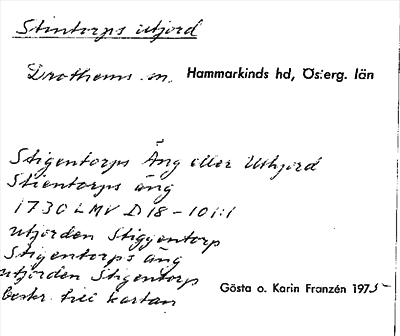 Stintorps utjord
Drothems sn. Hammarkinds hd, Österg. län
Stigentorps Äng eller Uthjord
Stientorps äng
1730 LMV D 18 - 101:1
utjorden Stiggentorp
Stigentorps äng
utjorden Stigentorp
beskr. till kartan
Gösta o. Karin Franzén 1975